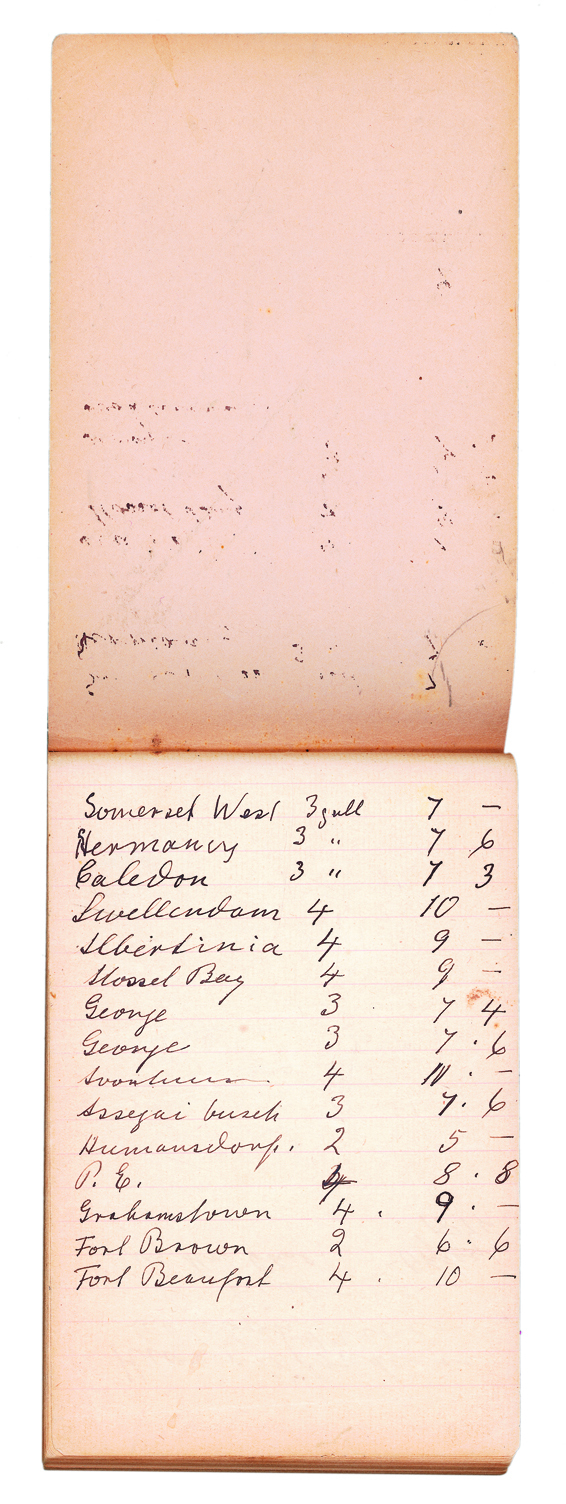 Somerset West 3 gall 7 –
Hermanus 3 " 7 6
Caledon 3 " 7 3
Swellendam 4 10 –
Albertinia 4 9 –
Mossel Bay 4 9 –
George 3 7 4
George 3 7 . 6
4 . –
Assegai busch 3 7 . 6
Humansdorp. 2 5 –
P. E. 8 . 8
Grahamstown 4 . 9 . –
Fort Brown 2 6 . 6
Fort Beaufort 4 . 10 –